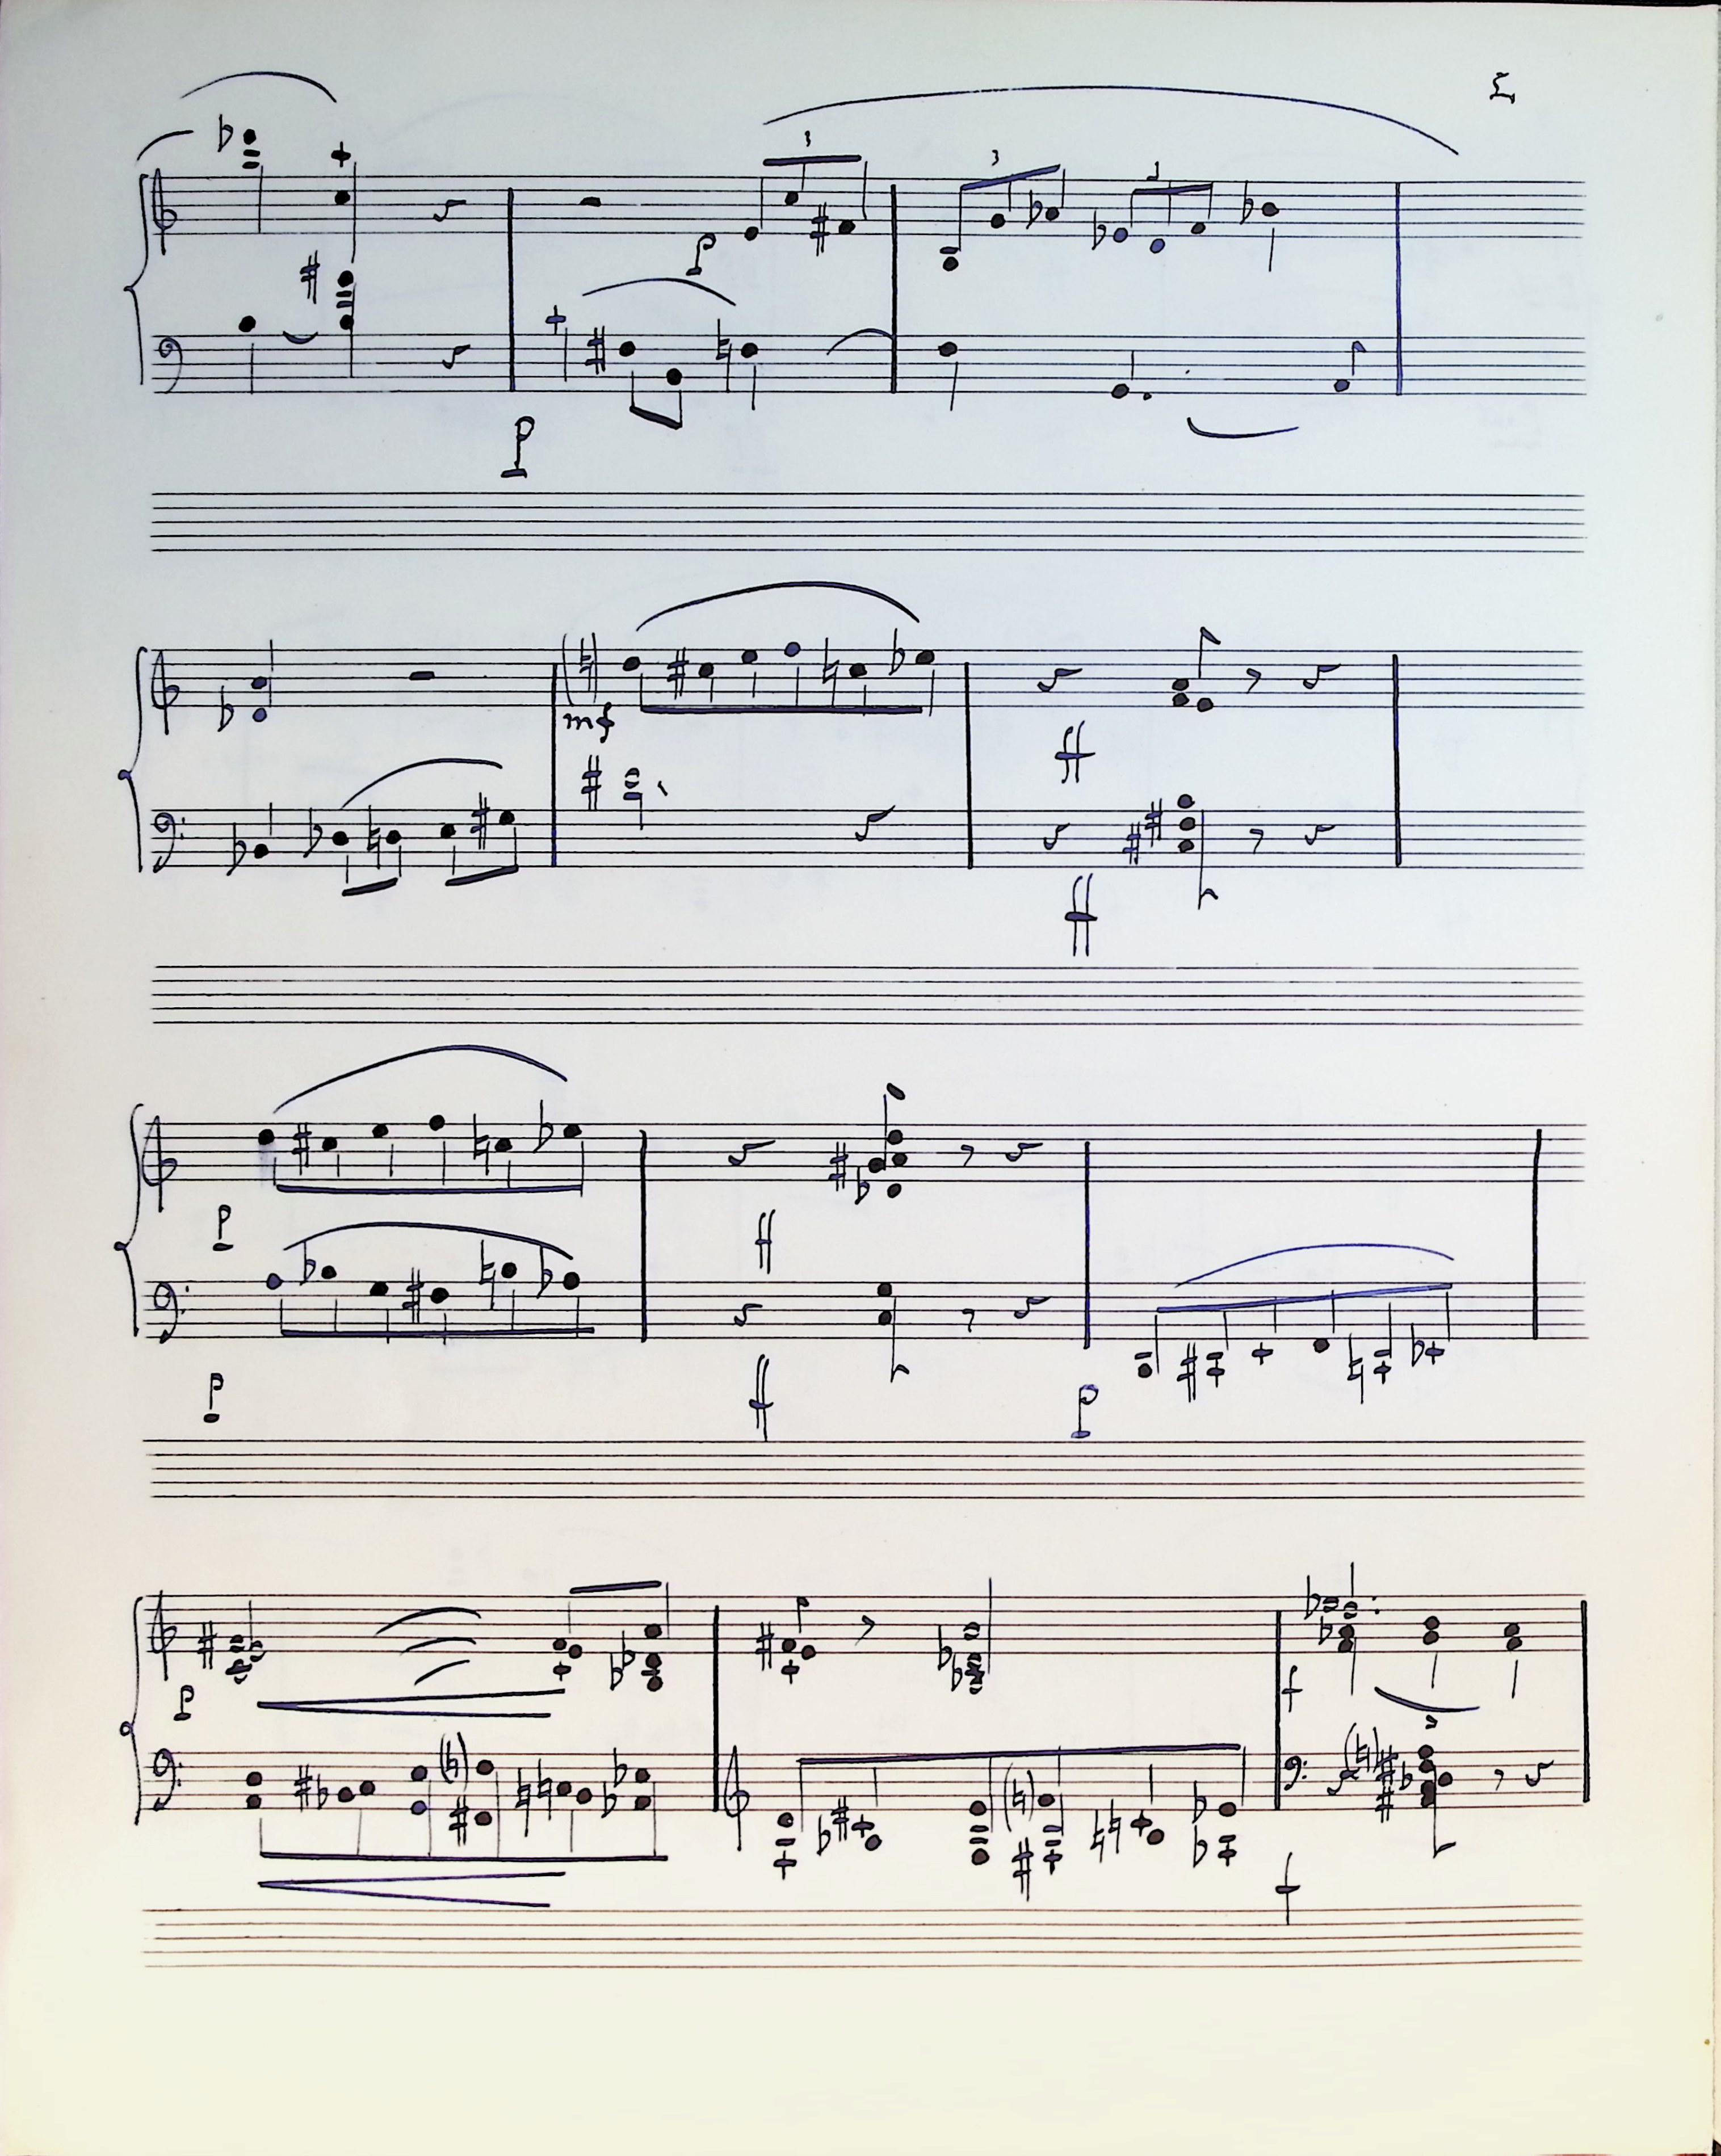 3 3 3
p
p
mf
ff
ff
p ff
p ff p
p f
f